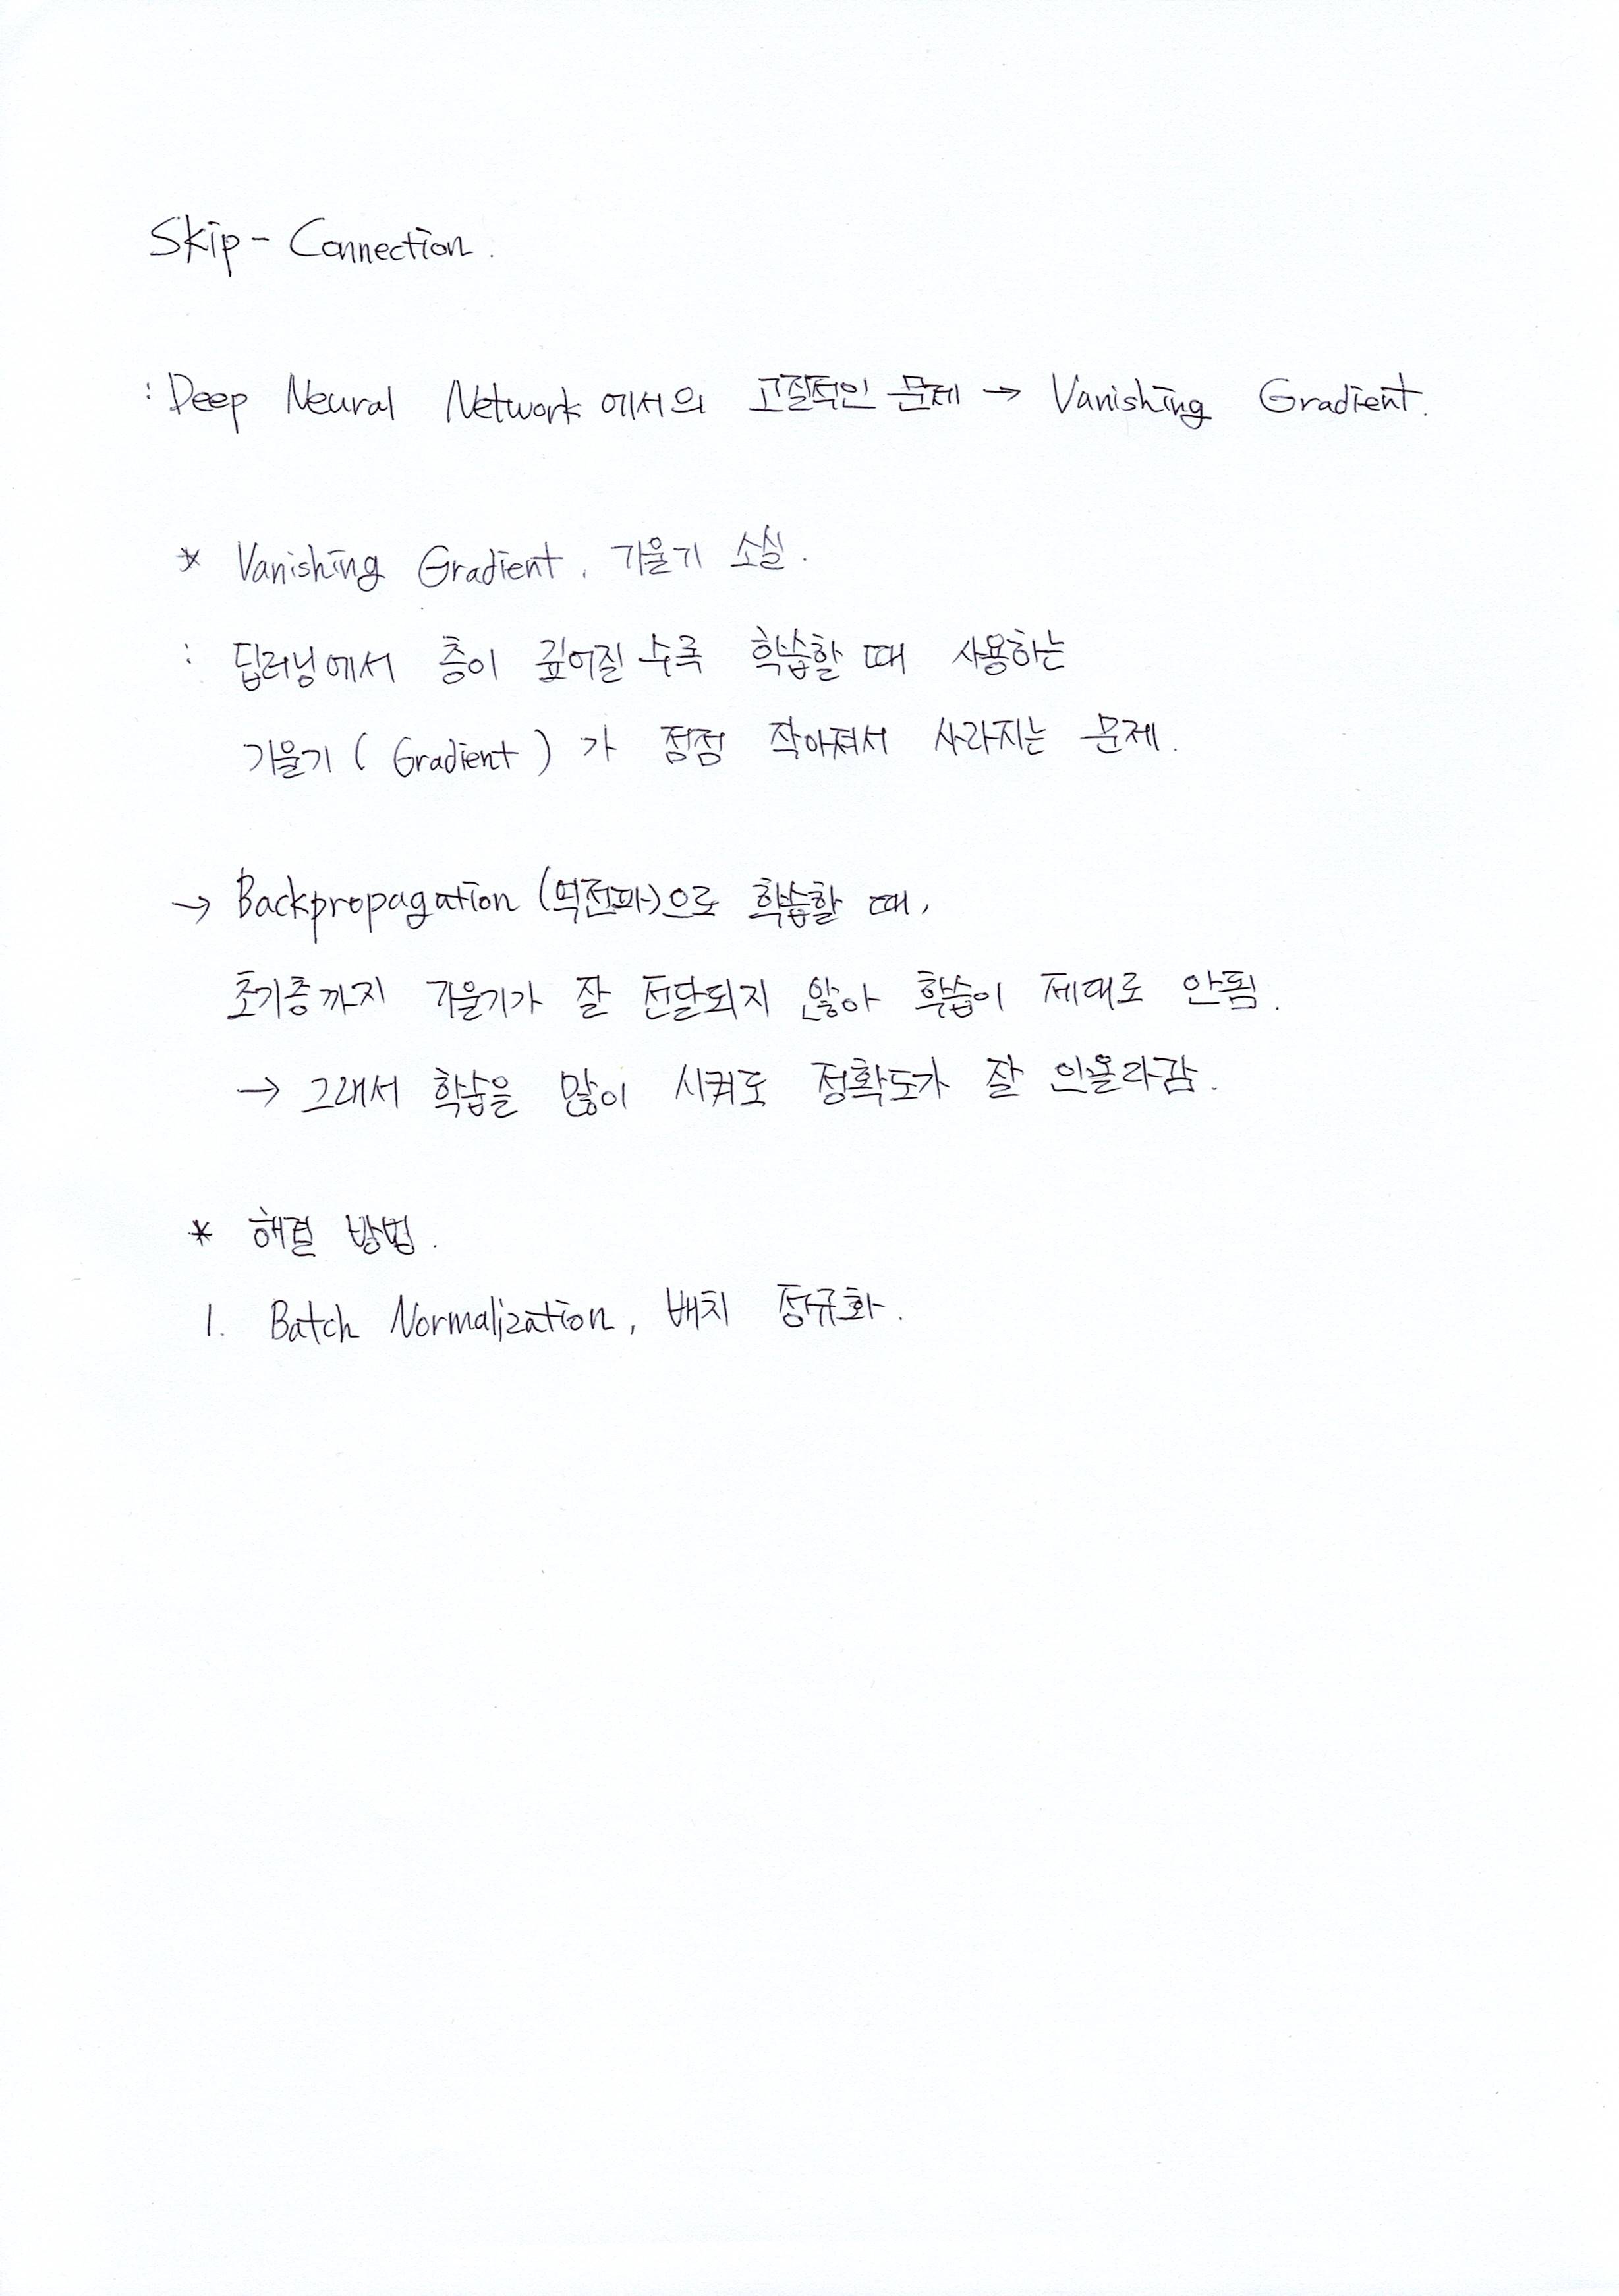 Skip - Connection.
: Deep Neural Network 에서의 고질적인 문제 → Vanishing Gradient.
* Vanishing Gradient, 기울기 소실.
: 딥러닝에서 층이 깊어질 수록 학습할 때 사용하는
기울기 ( Gradient ) 가 점점 작아져서 사라지는 문제.
→ Backpropagation (역전파)으로 학습할 때,
초기층까지 기울기가 잘 전달되지 않아 학습이 제대로 안됨.
→ 그래서 학습을 많이 시켜도 정확도가 잘 안올라감.
* 해결 방법.
1. Batch Normalization, 배치 정규화.